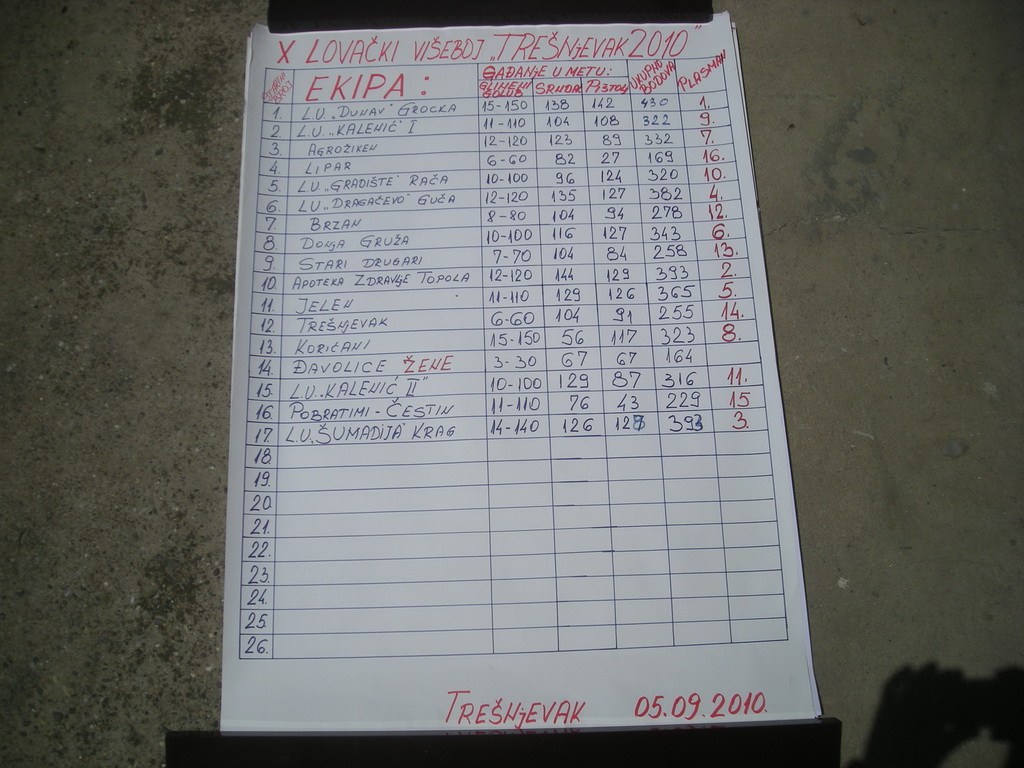 X LOVAČKI VIŠEBOJ „TREŠNJEVAK 2010"
EKIPA: GAĐANJE U METU: UKUPNO BODOVA PLASMAN
GLINENI GOLUB SRNDAĆ PIŠTOLJ
1. L.U. „DUNAV" GROCKA 15-150 138 142 430 1.
2. L.U. „KALENIĆ" I 11-110 104 108 322 9.
3. AGROŽIKEN 12-120 123 89 332 7.
4. LIPAR 6-60 82 27 169 16.
5. L.U. „GRADIŠTE" RAČA 10-100 96 124 320 10.
6. LU „DRAGAČEVO" GUČA 12-120 135 127 382 4.
7. BRZAN 8-80 104 94 278 12.
8. DONJA GRUŽA 10-100 116 127 343 6.
9. STARI DRUGARI 7-70 104 84 258 13.
10. APOTEKA ZDRAVLJE TOPOLA 12-120 144 129 393 2.
11. JELEN 11-110 129 126 365 5.
12. TREŠNJEVAK 6-60 104 91 255 14.
13. KORIĆANI 15-150 56 117 323 8.
14. ĐAVOLICE ŽENE 3-30 67 67 164
15. L.U. „KALENIĆ II" 10-100 129 87 316 11.
16. POBRATIMI - ČESTIN 11-110 76 43 229 15
17. L.U. „ŠUMADIJA" KRAG 14-140 126 127 393 3.
18.
19.
20.
21.
22.
23.
24.
25.
26.
TREŠNJEVAK 05.09.2010.